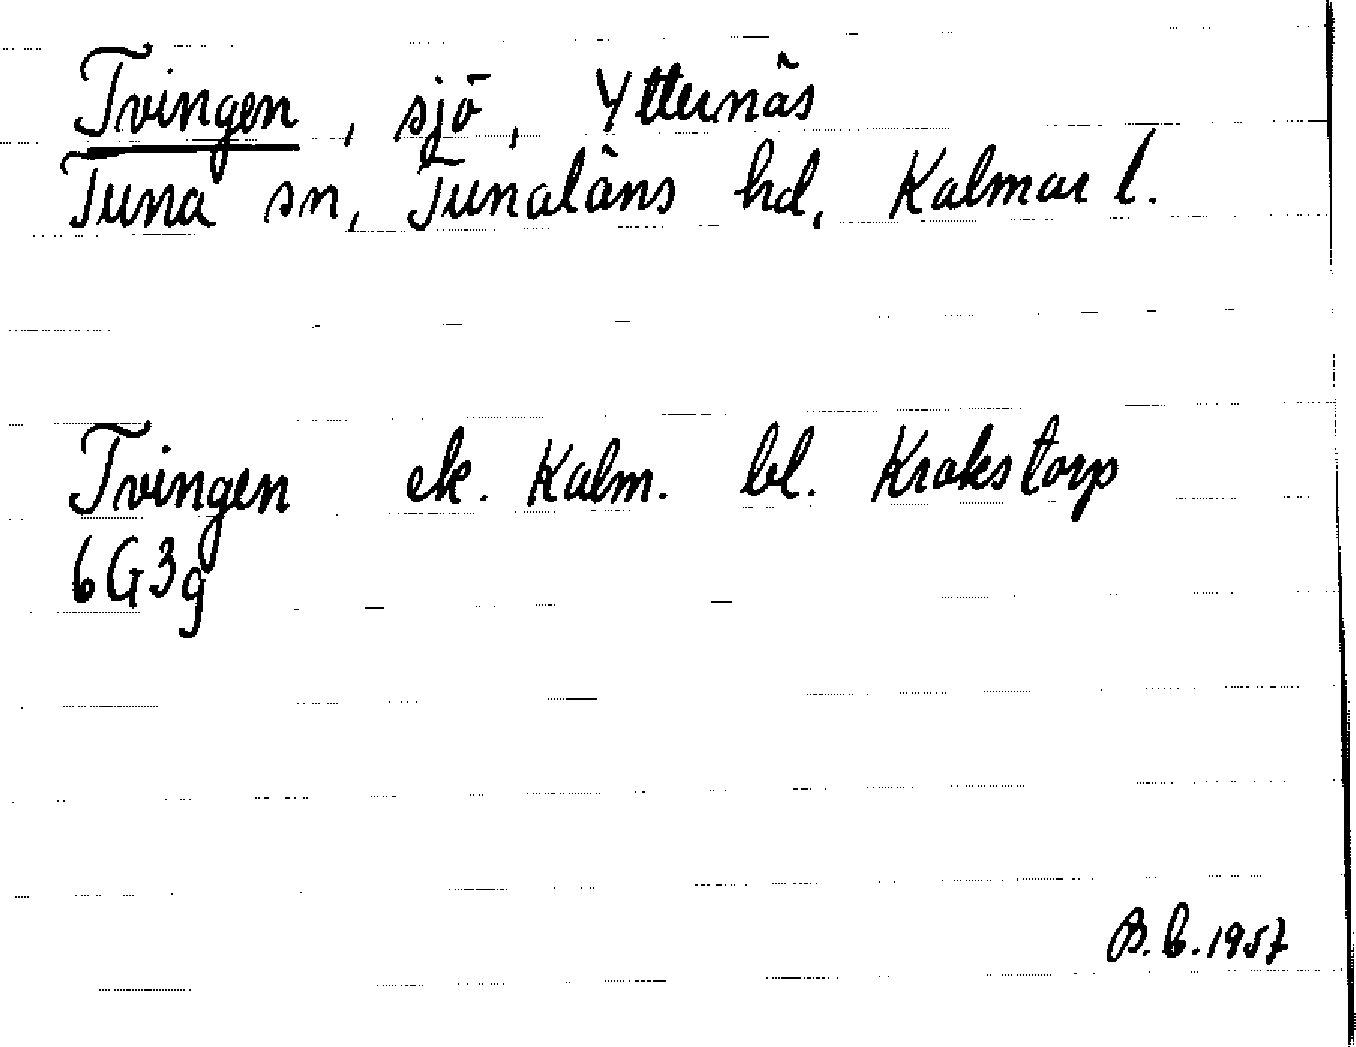 Tvingen, sjö, Ytternäs
Tuna sn, Tunaläns hd, Kalmar l.
Tvingen ek. Kalm. bl. Krokstorp
6G3g
B.b.1957